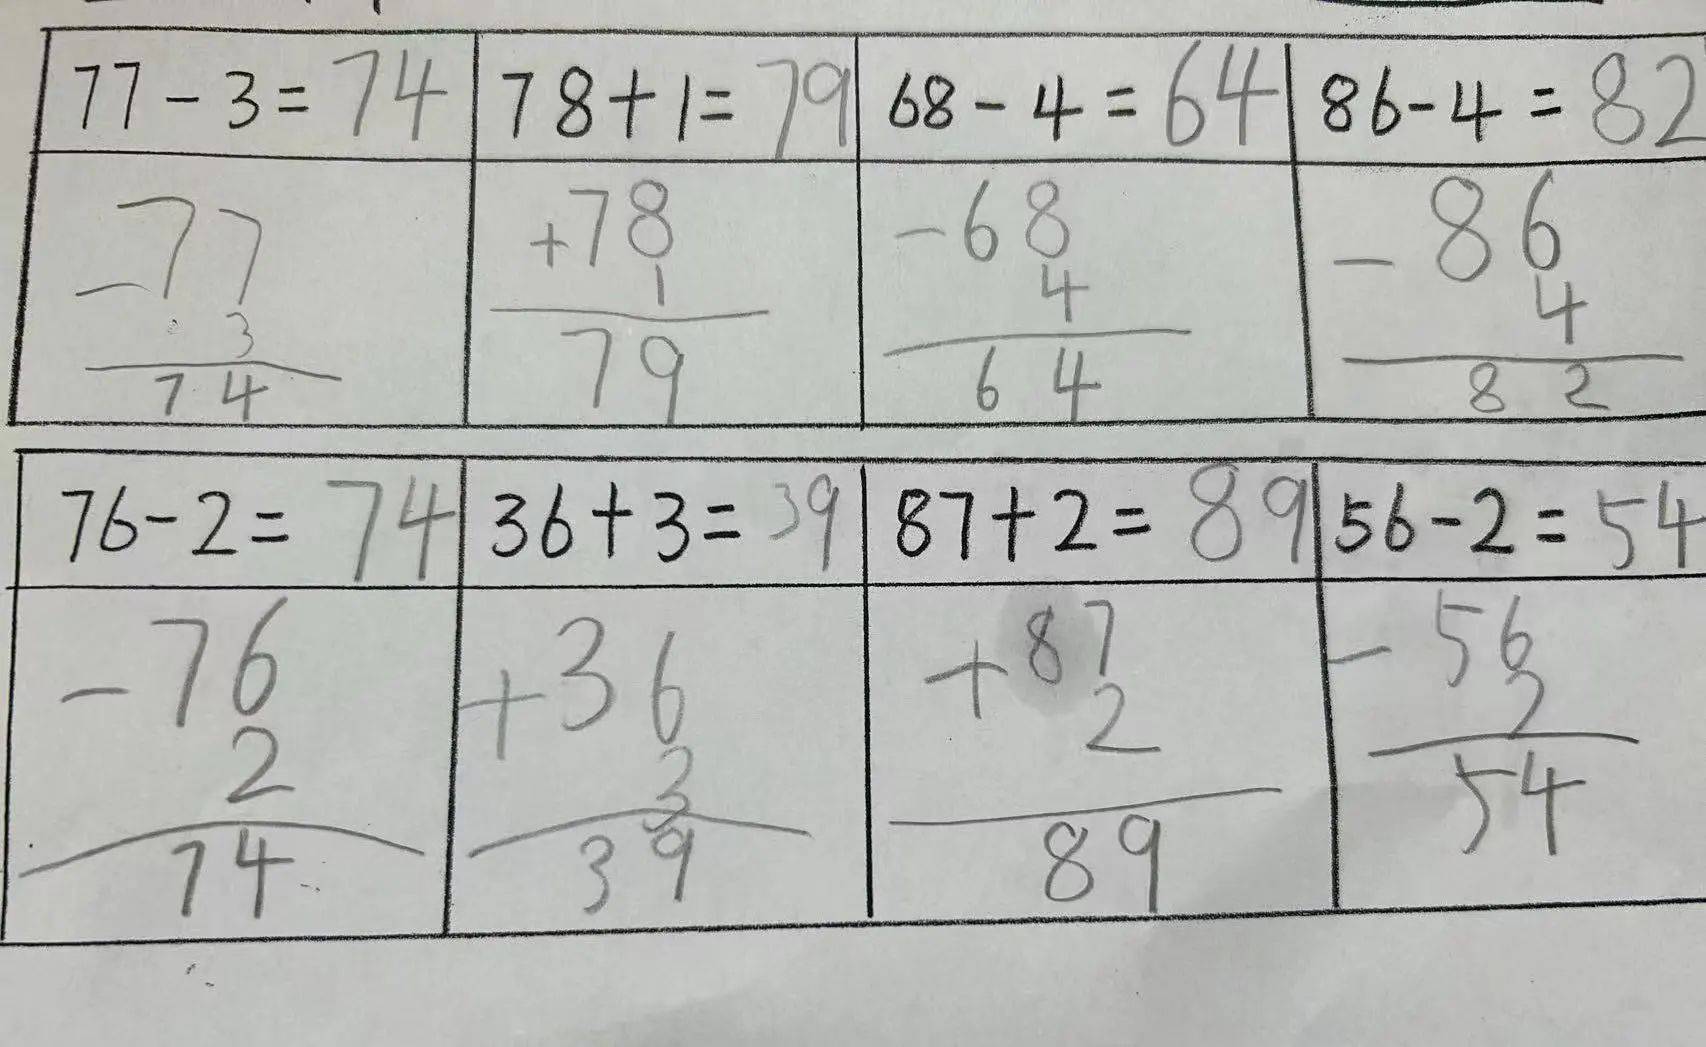 77-3=74
78+1=79
68-4=64
86-4=82
-77
3
74
+78
1
79
-68
4
64
-86
4
82
76-2=74
36+3=39
87+2=89
56-2=54
-76
2
74
+36
3
39
+87
2
89
-56
2
54